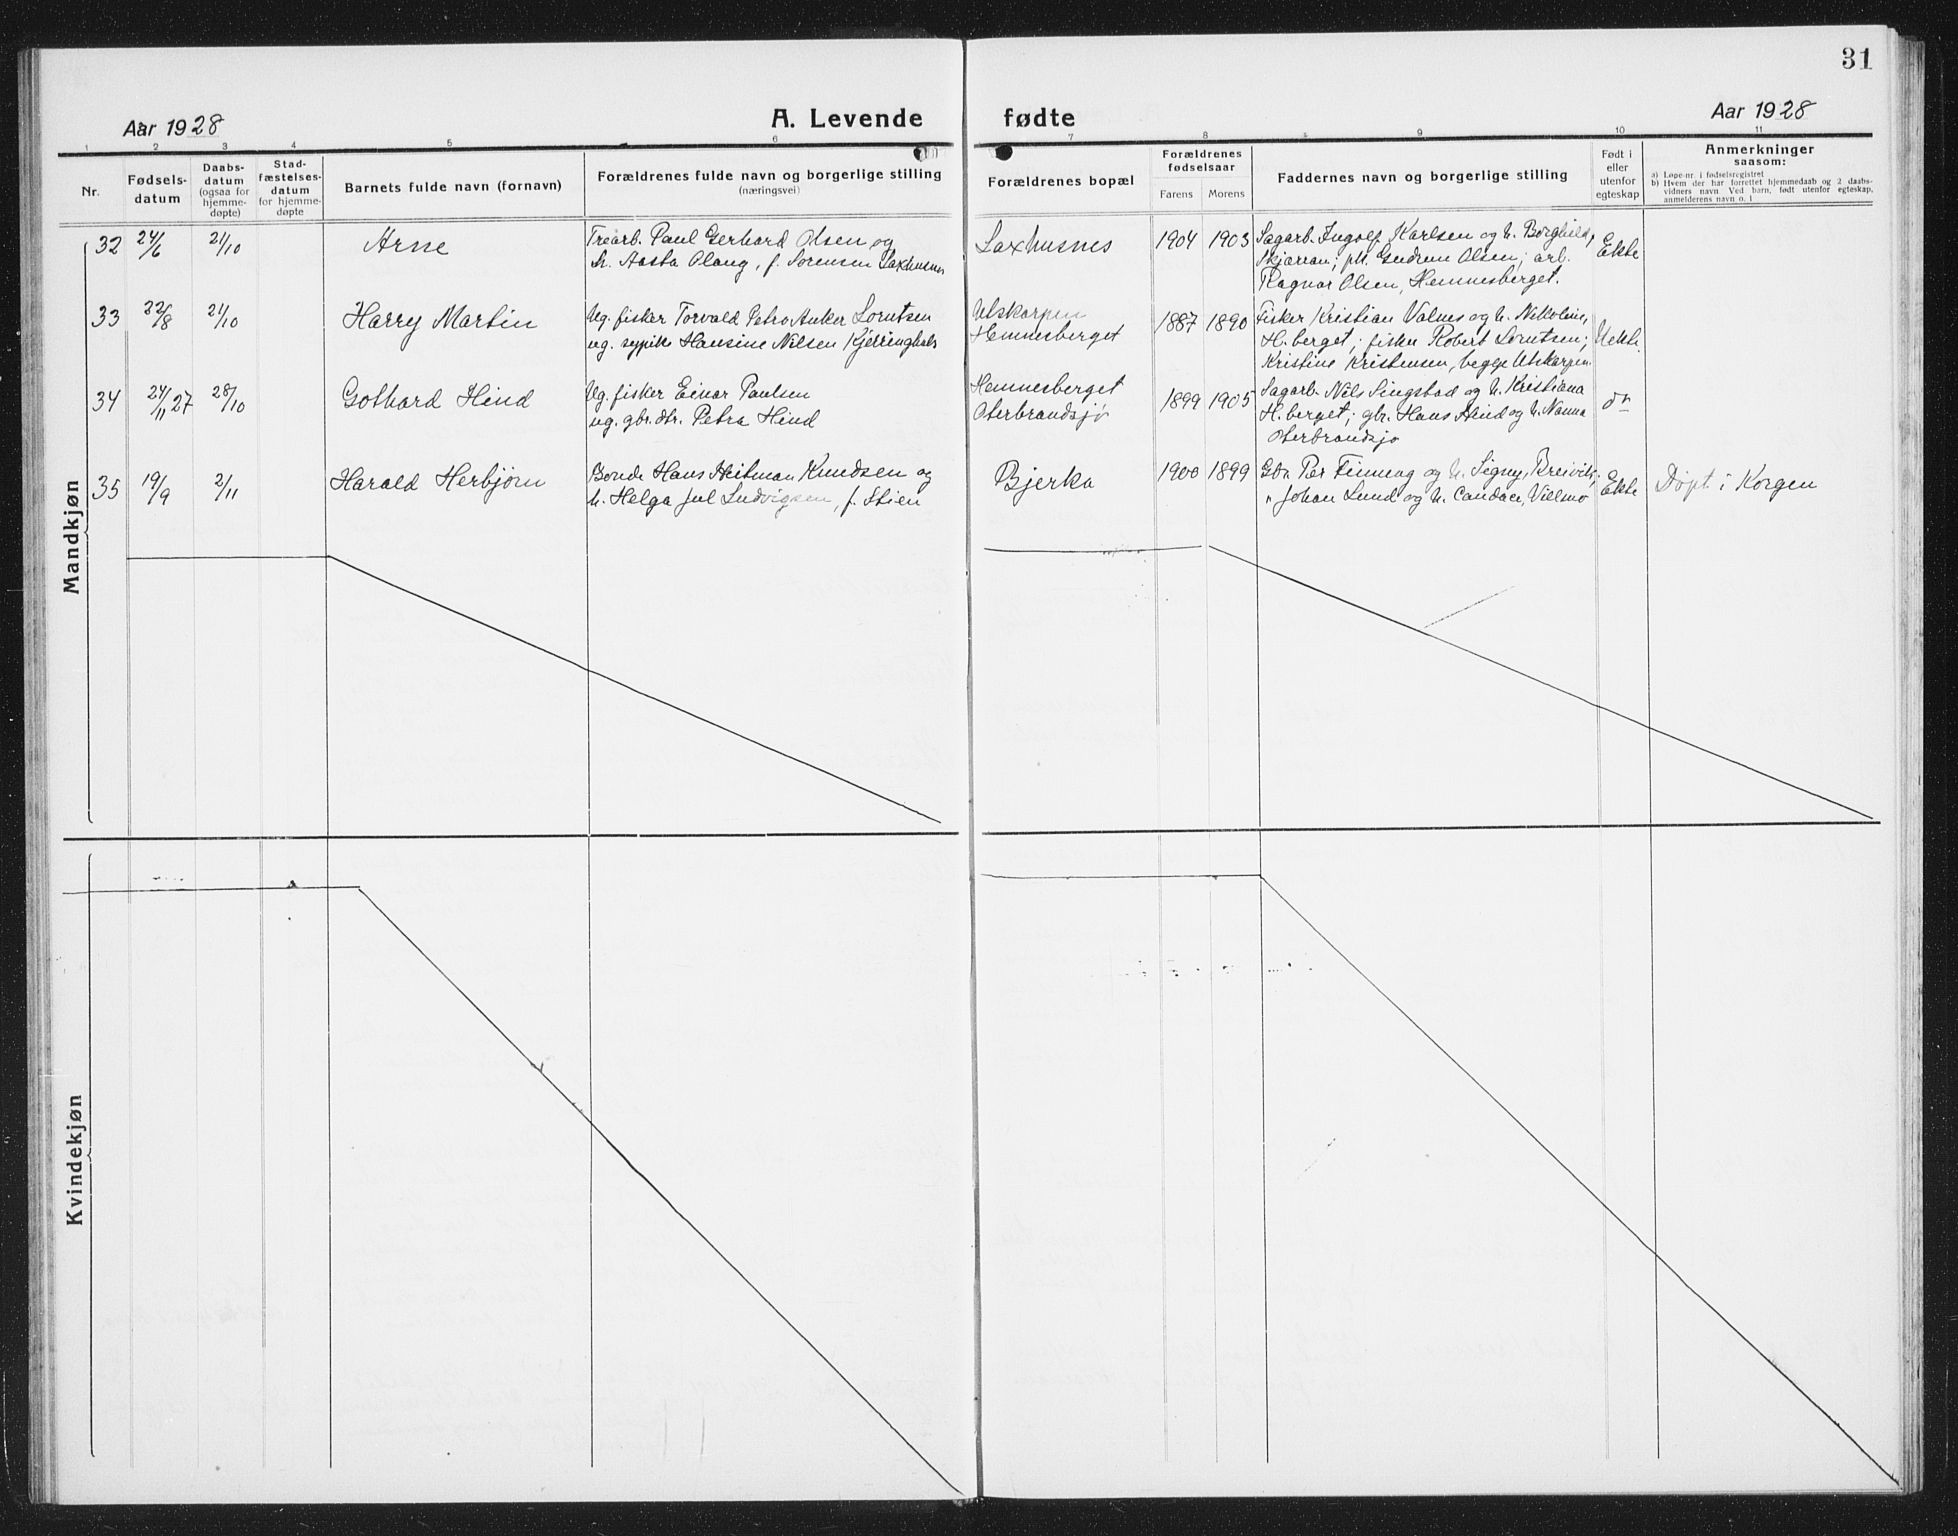 31
Aar 1928
A. Levende fødte
Aar 1928
1 2 3 4 5 6 7 8 9 10 11
Nr.
Fødsels-
datum
Daabs-
datum
(ogsaa for
hjemme-
døpte)
Stad-
fæstelses-
datum
for hjemme-
døpte
Barnets fulde navn (fornavn)
Forældrenes fulde navn og borgerlige stilling
(næringsvei)
Forældrenes bopæl
Forældrenes
fødselsaar
Farens Morens
Faddernes navn og borgerlige stilling
Født i
eller
utenfor
egteskap
Anmerkninger
saasom:
a) Løpe-nr. i fødselsregistret
b) Hvem der har forrettet hjemmedaab og 2 daabs-
vidners navn. Ved barn, født utenfor egteskap,
anmelderens navn o. l
Mandkjøn
32 24/6 21/10 Arne
Trearb. Paul Gerhard Olsen og
h. Aasta Olaug, f. Sørensen Laxhusnes
Laxhusnes
1904 1903
Sagarb. Ingolf Karlsen og h. Borghild,
pk. Gudrun Olsen; arb.
Ragnar Olsen, Hemnesberget.
Ekte
33 22/8 21/10 Harry Martin
Ug. fisker Torvald Petro Anker Lorntsen
ug. sypike Hansine Nilsen Kjerringhals
Utskarpen
Hemnesberget
1887 1890
Fisker Kristian Valnes og h. Nikoline,
H.berget; fisker Robert Lorntsen;
Kristine Kristensen, begge Utskarpen
Uekte
34 24/11 27 28/10 Gothard Hind
Ug. fisker Einar Paulsen
ug. gbr.dtr. Petra Hind
Hemnesberget
Oterbrandsjø
1899 1905
Sagarb. Nils Singstad og h. Kristiana
H.berget; gbr. Hans Hind og h. Nanna
Oterbrandsjø
do
35 19/9 2/11 Harald Herbjørn
Bonde Hans Heitman Knudsen og
h. Helga Jul Ludvigsen, f. Stien
Bjerka
1900 1899
Gbr. Per Finneag og h. Signy, Breivik;
" Johan Lund og h. Candace, Villmo
Ekte
Døpt i Korgen
Kvindekjøn